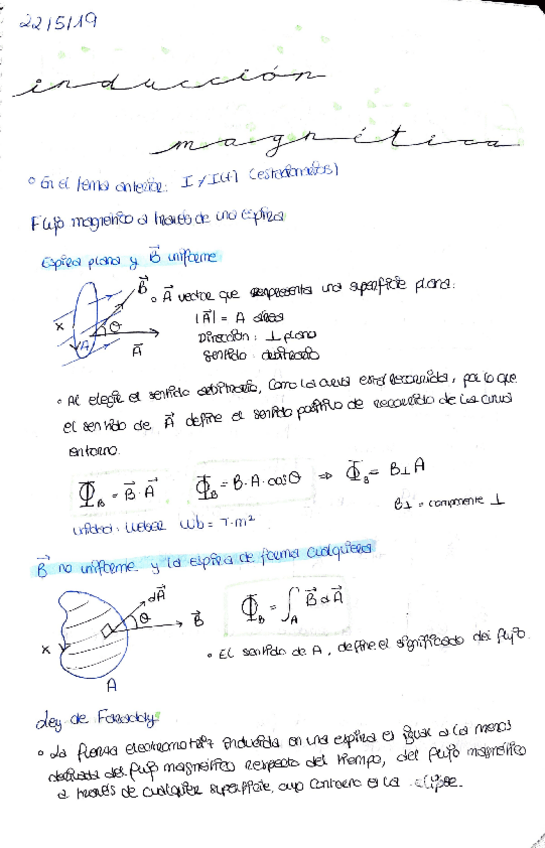 22/5/19
inducción
magnética
° En el tema anterior: I ≠ I(t) (estacionarios)
Flujo magnético a través de una espira
Espira plana y B⃗ uniforme
B⃗
x θ
A A⃗
° A⃗ vector que representa una superficie plana:
|A⃗| = A área
Dirección: ⊥ plano
Sentido: arbitrario
° Al elegir el sentido arbitrario, como la curva está recorrida, por lo que
el sentido de A⃗ define el sentido positivo de recorrido de la curva
entorno.
Φ_B = B⃗ · A⃗ Φ_B = B · A · cos θ ⇒ Φ_B = B⊥ A
B⊥ = componente ⊥
unidad: Weber Wb = T·m²
B⃗ no uniforme y la espira de forma cualquiera
dA⃗
θ B⃗
x
A
Φ_B = ∫_A B⃗ dA⃗
° El sentido de A, define el significado del flujo.
Ley de Faraday
° La fuerza electromotriz inducida en una espira es igual a la menos
derivada del flujo magnético respecto del tiempo, del flujo magnético
a través de cualquier superficie, cuyo contorno es la